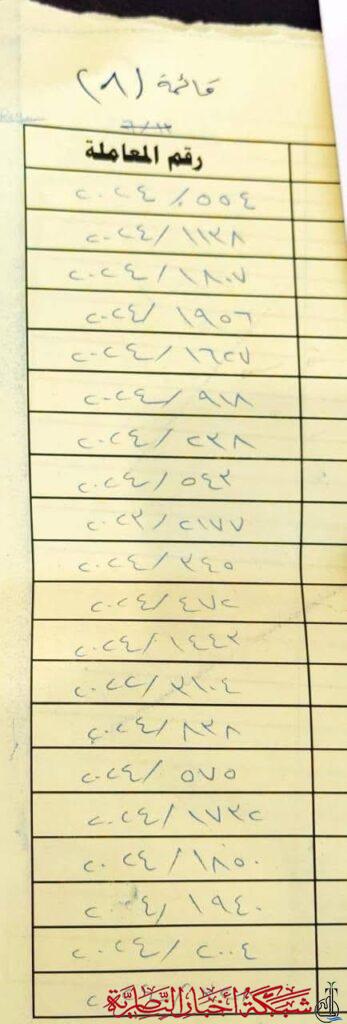 قائمة (٨)
٦/١٣
رقم المعاملة
٥٥٤ / ٢٠٢٤
١١٣٨ / ٢٠٢٤
١٨٠٧ / ٢٠٢٤
١٩٥٦ / ٢٠٢٤
١٦٢٧ / ٢٠٢٤
٩١٨ / ٢٠٢٤
٢٣٨ / ٢٠٢٤
٥٤٣ / ٢٠٢٤
٢١٧٧ / ٢٠٢٣
٣٤٥ / ٢٠٢٤
٤٧٢ / ٢٠٢٤
١٤٤٣ / ٢٠٢٤
٣١٠٤ / ٢٠٢٢
٨٣٨ / ٢٠٢٤
٥٧٥ / ٢٠٢٤
١٧٣٢ / ٢٠٢٤
١٨٥٠ / ٢٠٢٤
١٩٤٠ / ٢٠٢٤
٢٠٠٤ / ٢٠٢٤
شبكة أخبار الناصرية